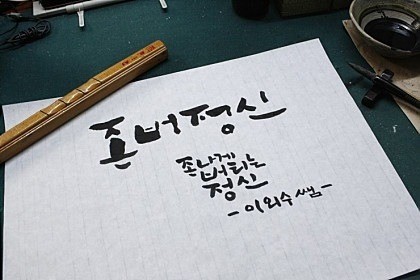 존버정신
존나게
버티는
정신
- 이외수 쌤 -